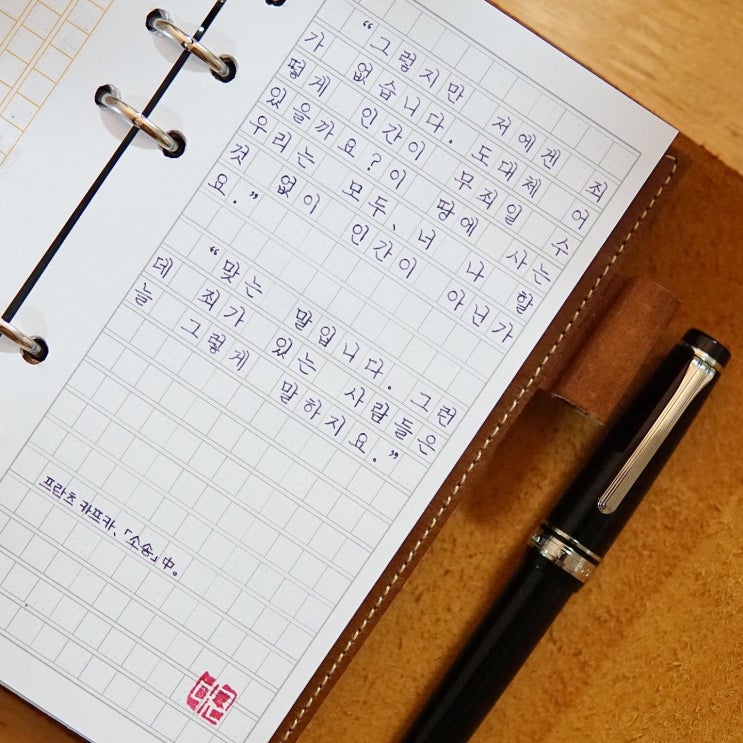 “그렇지만 저에겐 죄
가 없습니다. 도대체 어
떻게 인간이 무죄일 수
있을까요? 이 땅에 사는
우리는 모두, 너 나 할
것 없이 인간이 아닌가
요.”
“맞는 말입니다. 그런
데 죄가 있는 사람들은
늘 그렇게 말하지요.”
프란츠 카프카, 「소송」 中.